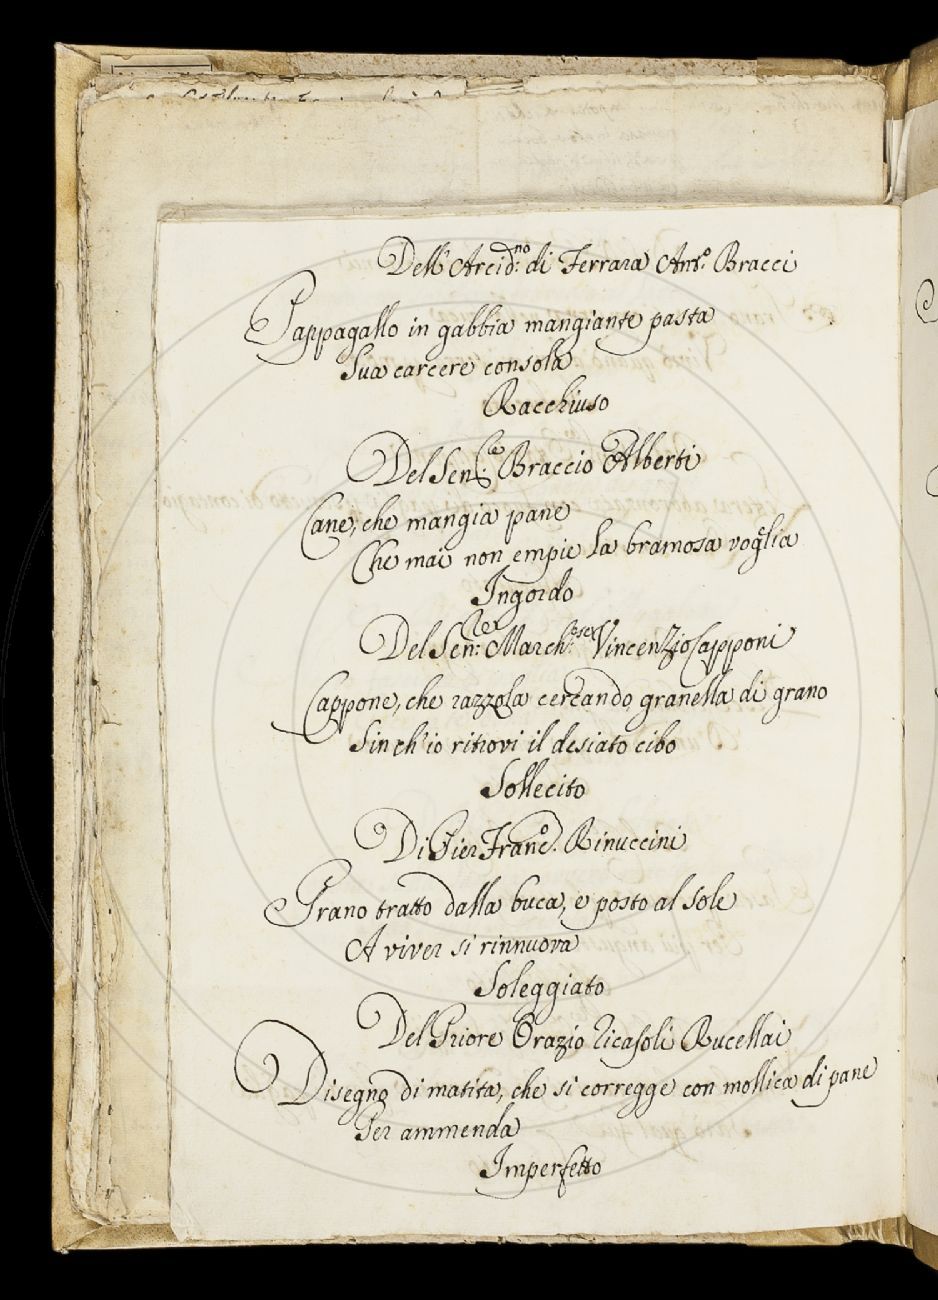 Dell' Arcid:no di Ferrara Ant.o Bracci
Pappagallo in gabbia mangiante pasta
Sua carcere consola
Racchiuso
Del Sen:re Braccio Alberti
Cane, che mangia pane
Che mai non empie la bramosa voglia
Ingordo
Del Sen:re March:ese Vincenzio Capponi
Cappone, che razzola cercando granella di grano
Sin ch'io ritrovi il desiato cibo
Sollecito
Di Pier Franc.o Rinuccini
Grano tratto dalla buca, e posto al sole
A viver si rinnuova
Soleggiato
Del Priore Orazio Ricasoli Rucellai
Disegno di matita, che si corregge con mollica di pane
Per ammenda
Imperfetto